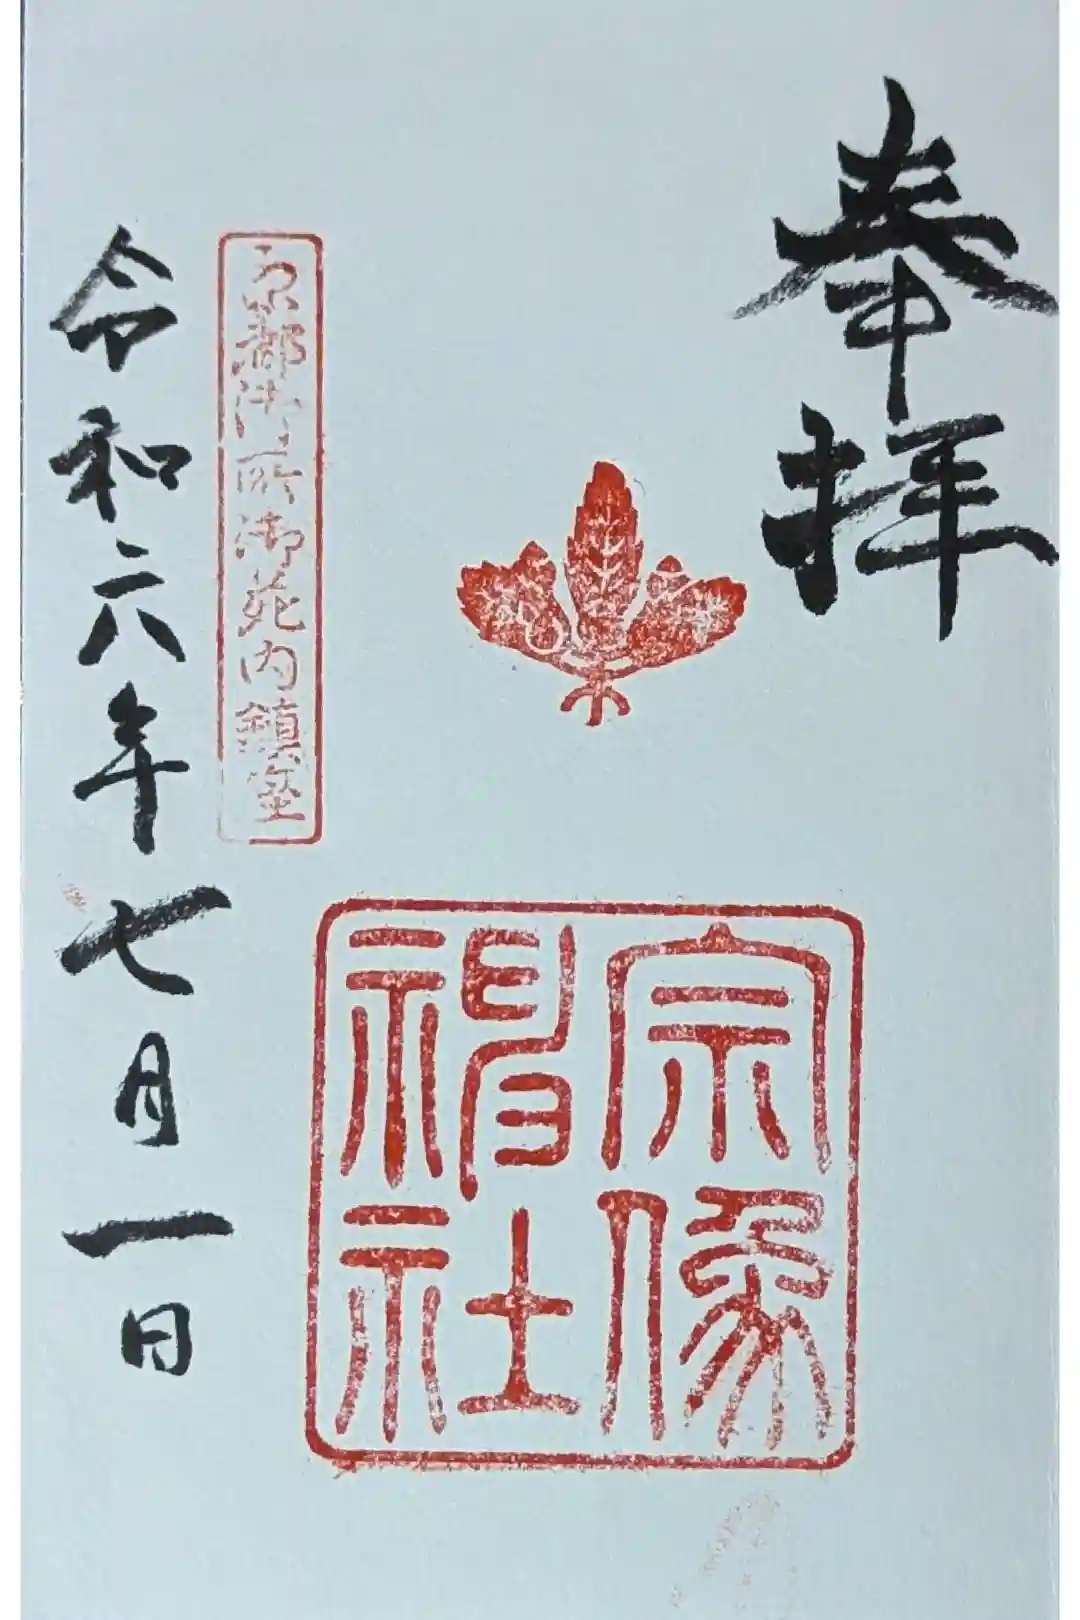 奉拝
宗像
神社
京都御所御苑内鎮座
令和六年七月一日